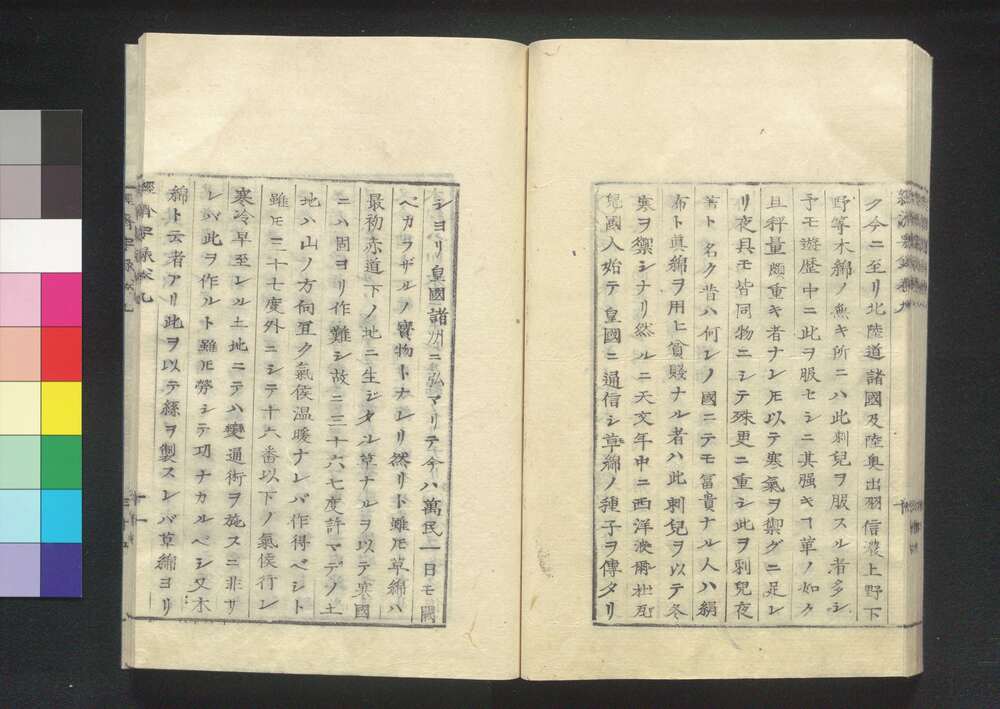 ク今ニ至リ北陸道諸國及陸奥出羽信濃上野下
野等木綿ノ無キ所ニハ此刺兒ヲ服スル者多シ
予モ遊歴中ニ此ヲ服セシニ其强キヿ革ノ如ク
且秤量頗重キ者ナレ𪜈以テ寒氣ヲ禦グニ足レ
リ夜具モ皆同物ニシテ殊更ニ重シ此ヲ刺兒夜
著ト名ク昔ハ何レノ國ニテモ冨貴ナル人ハ絹
布ト眞綿ヲ用ヒ貧賤ナル者ハ此刺兒ヲ以テ冬
寒ヲ禦シナリ然ルニ天文年中ニ西洋波爾杜瓦
兒國人始テ皇國ニ通信シ草綿ノ種子ヲ傳タリ
シヨリ皇國諸州ニ弘マリテ今ハ萬民一日モ闕
ベカラザルノ寳物トナレリ然リト雖𪜈草綿ハ
最初赤道下ノ地ニ生ジタル草ナルヲ以テ寒國
ニハ固ヨリ作難シ故ニ三十六七度許マデノ土
地ハ山ノ方向宜ク氣候温暖ナレバ作得ベシト
雖𪜈三十七度外ニシテ十六番以下ノ氣候行レ
寒冷早至レル土地ニテハ變通術ヲ施スニ非サ
レバ此ヲ作ルト雖𪜈勞シテ功ナカルベシ又木
綿ト云者アリ此ヲ以テ絲ヲ製スレバ草綿ヨリ